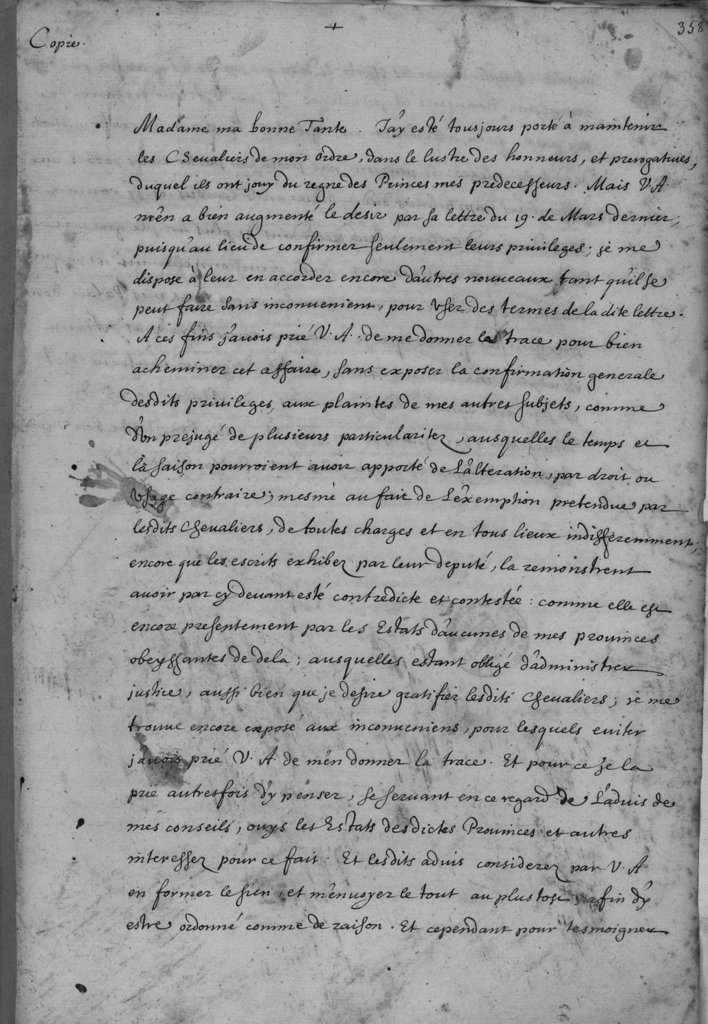 Copie.
+
358
Madame ma bonne Tante. J'ay esté tousjours porté à maintenir
les Chevaliers de mon ordre, dans le lustre des honneurs, et prerogatives,
duquel ils ont jouy du regne des Princes mes predecesseurs. Mais V.A.
m'en a bien augmenté le desir par sa lettre du 19. de Mars dernier,
puisqu'au lieu de confirmer seulement leurs privileges; je me
dispose à leur en accorder encore d'autres nouveaux tant qu'il se
peut faire sans inconvenient, pour user des termes de la dite lettre.
A ces fins j'avois prié V.A. de me donner la trace pour bien
acheminer cet affaire, sans exposer la confirmation generale
desdits privileges, aux plaintes de mes autres subjets, comme
d'un prejugé de plusieurs particularitez, ausquelles le temps et
la saison pourroient avoir apporté de l'alteration, par droit ou
usage contraire; mesme au fait de l'exemption pretendue par
lesdits Chevaliers, de toutes charges et en tous lieux indifferemment,
encore que les escrits exhibez par leur deputé, la remonstrent
avoir par cy devant esté contredicte et contestée: comme elle est
encore presentement par les Estats d'aucunes de mes provinces
obeyssantes de dela; ausquelles estant obligé d'administrer
justice, aussi bien que je desire gratifier lesdits Chevaliers; je me
trouve encore exposé aux inconveniens, pour lesquels eviter
j'avois prié V.A. de m'en donner la trace. Et pour ce je la
prie autresfois d'y penser, se servant en ce regard de l'advis de
mes conseils, ouys les Estats desdictes Provinces et autres
interessez pour ce fait. Et lesdits advis considerez par V.A
en former le sien, et m'envoyer le tout au plustost, afin d'y
estre ordonné comme de raison. Et cependant pour tesmoigner